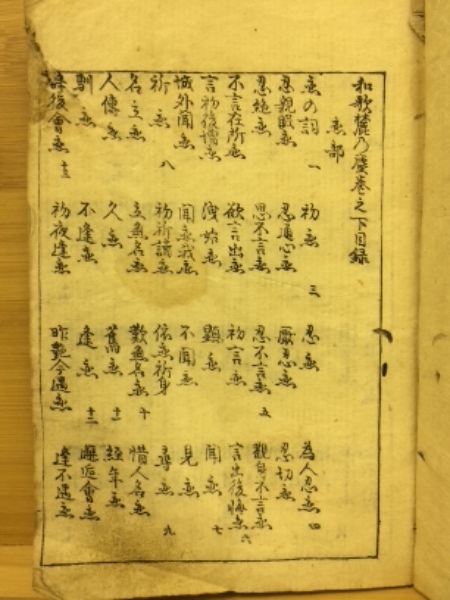 和歌麓乃塵巻之下目録
恋部
恋の詞 一 初恋 三 忍恋 為人忍恋 四
忍親眤恋 忍通心恋 厭忍恋 忍切恋
忍絶恋 思不言恋 忍不言恋 五 観身不言恋
不言在所恋 欲言出恋 初言恋 言出後悔恋 六
言初後憎恋 洩始恋 顕恋 聞恋 七
聞恋我恋 不聞恋 見恋
祈恋 八 初祈請恋 依恋祈身 尋恋 九
名立恋 立無名恋 歎無名恋 十 惜人名恋
人伝恋 久恋 旧恋 十一 経年恋
馴恋 不逢恋 逢恋 十二 邂逅会恋
後会恋 十三 初夜逢恋 昨艶今遇恋 逢不遇恋